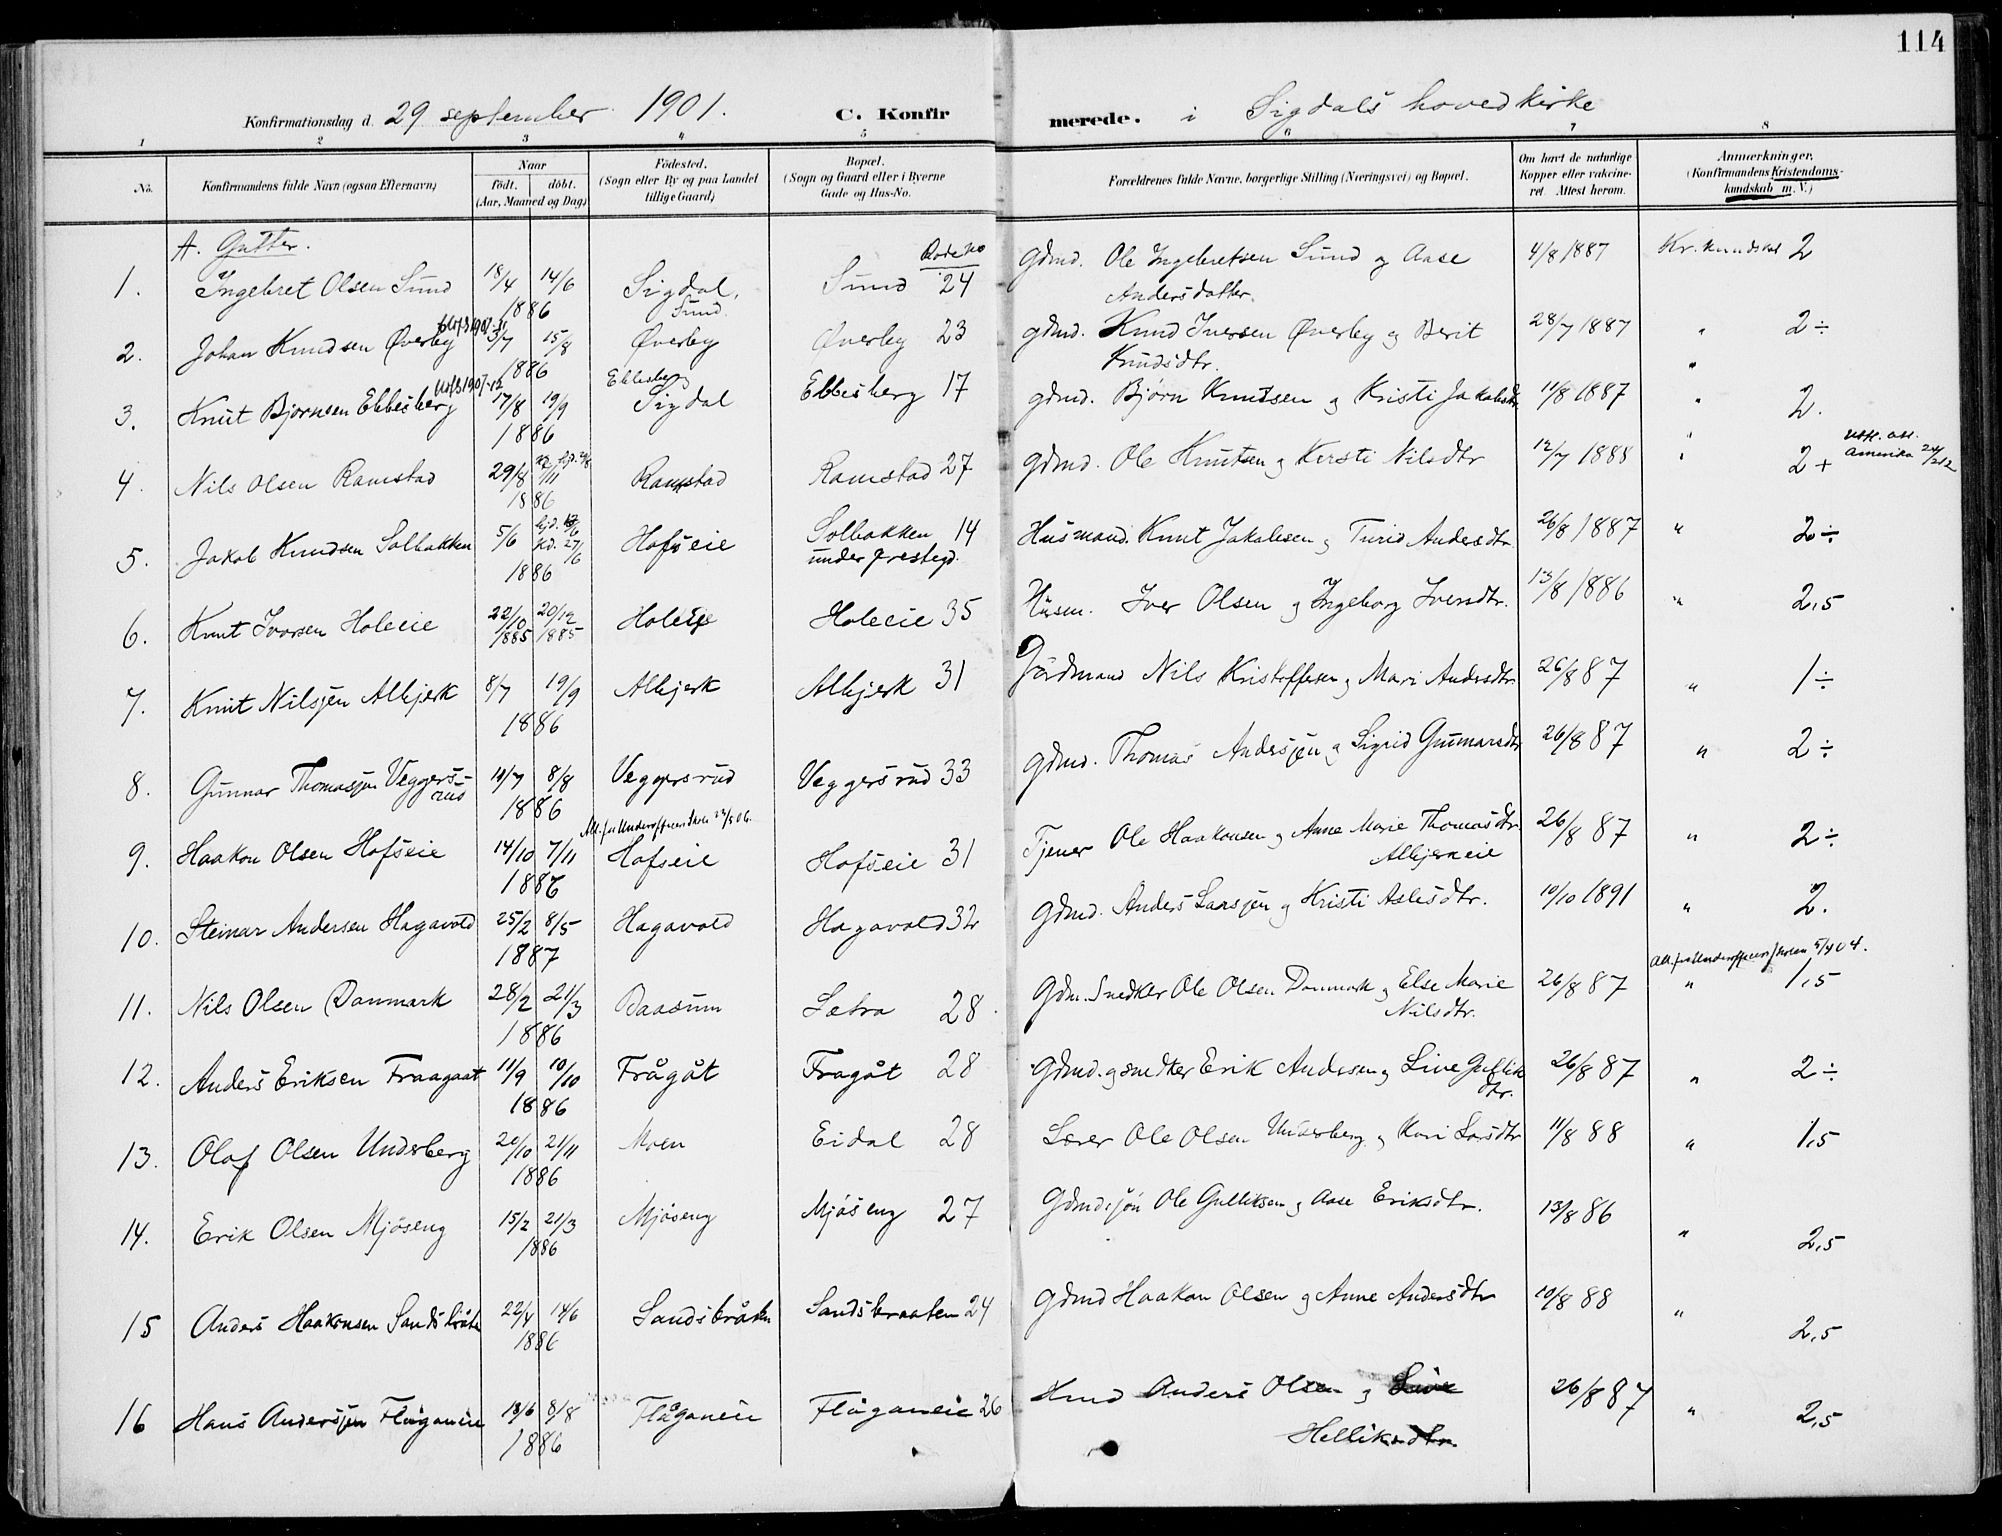 114
Konfirmationsdag d. 29 september 1901. C. Konfirmerede. i Sigdals hovedkirke
1 2 3 4 5 6 7 8
No. Konfirmandens fulde Navn (ogsaa Efternavn) Naar födt. döbt. (Aar, Maaned og Dag) Födested. (Sogn eller By og paa Landet tillige Gaard) Bopæl. (Sogn og Gaard eller i Byerne Gade og Hus-No. Forældrenes fulde Navne, borgerlige Stilling (Næringsvei) og Bopæl. Om havt de naturlige Kopper eller vaccineret. Attest herom. Anmærkninger. (Konfirmandens Kristendomskundskab m. V.)
A. Gutter.
Rode No
1. Ingebret Olsen Sund 18/4 14/6 1886 Sigdal, Sund. Sund 24 Gdmd. Ole Ingebretsen Sund og Aase Andersdatter. 4/8 1887 Kr. kundskab 2
2. Johan Knudsen Øverby 3/7 15/8 1886 Øverby Øverby 23 gdmd. Knud Iversen Øverby og Berit Knudsdtr. 28/7 1887 " 2÷
3. Knut Bjørnsen Ebbesberg 17/8 19/9 1886 Ebbesberg Sigdal Ebbesberg 17 gdmd. Bjørn Knutsen og Kristi Jakobsdtr 11/8 1887 " 2.
4. Nils Olsen Ramstad 29/8 7/11 1886 Ramstad Ramstad 27 gdmd. Ole Knutsen og Kersti Nilsdtr 12/7 1888 " 2+ utsk. att. Amerika 24/2 12
5. Jakob Knudsen Solbakken 5/6 kd. 27/6 1886 Hofseie Solbakken 14 under prestegd. Husmand. Knut Jakobsen og Turid Andersdtr. 26/8 1887 " 2÷
6. Knut Iversen Holeeie 22/10 1885 20/12 1885 Holeeie Holeeie 35 Husm. Iver Olsen og Ingeborg Iversdtr. 13/8 1886 " 2,5
7. Knut Nilsjen Albjerk 8/7 19/9 1886 Albjerk Albjerk 31 Gårdmand Nils Kristoffersen og Mari Andersdtr 26/8 87 " 1÷
8. Gunnar Thomasjen Veggersrud 10/7 8/8 1886 Veggersrud Veggersrud 33 gdmd. Thomas Andersjen og Sigrid Gunnarsdtr 26/8 87 " 2÷
Att. for Underofficersskole
9. Haakon Olsen Hofseie 14/10 7/11 1886 Hofseie Hofseie 31 Tjener Ole Haakonsen og Anne Marie Thomasdtr Albjerkeie 26/8 87 " 2÷
10. Steinar Andersen Hagavold 25/2 8/5 1887 Hagavold Hagavold 32 gdmd. Anders Larsjen og Kristi Aslesdtr. 10/10 1891 " 2.
Att. for Underofficersskolen 5/4 04.
11. Nils Olsen Danmark 28/2 21/3 1886 Daasum Sætra 28. Gdm. Snedker Ole Olsen Danmark og Else Marie Nilsdtr. 26/8 87 " 1,5
12. Anders Eriksen Fraagaat 11/9 10/10 1886 Frågåt Fragåt 28 Gdmd. og snedker Erik Andersen og Live Gulliksdtr. 26/8 87 " 2÷
13. Olaf Olsen Underberg 20/10 21/11 1886 Moen Eidal 28 Lærer Ole Olsen Underberg og Kari Larsdtr 11/8 88 " 1,5
14. Erik Olsen Mjöseng 15/2 21/3 1886 Mjöseng Mjöseng 27 Gdmdsjön Ole Gulliksen og Aase Eriksdtr. 13/8 86 " 2,5
15 Anders Haakonsen Sandsbråten 22/4 14/6 1886 Sandsbråten Sandsbraaten 24 Gdmd Haakon Olsen og Anne Andersdtr 10/8 88 " 2,5
16 Hans Andersjen Flåganeie 13/6 8/8 1886 Flåganeie Flåganeie 26 Hmd Anders Olsen og Live Helliksdtr. 26/8 87 " 2,5